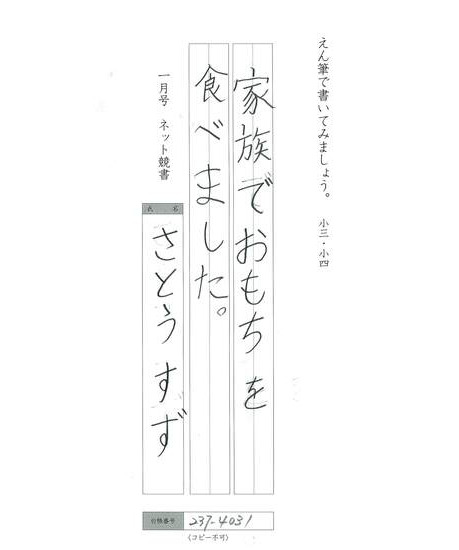 えん筆で書いてみましょう。　小三・小四
家族でおもちを
食べました。
一月号　ネット競書
氏　名
さとうすず
会員番号 237-4031
(コピー不可)